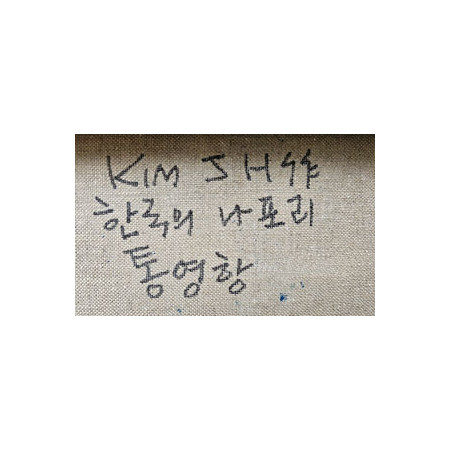 KIM S H
한국의 나포리
통영항